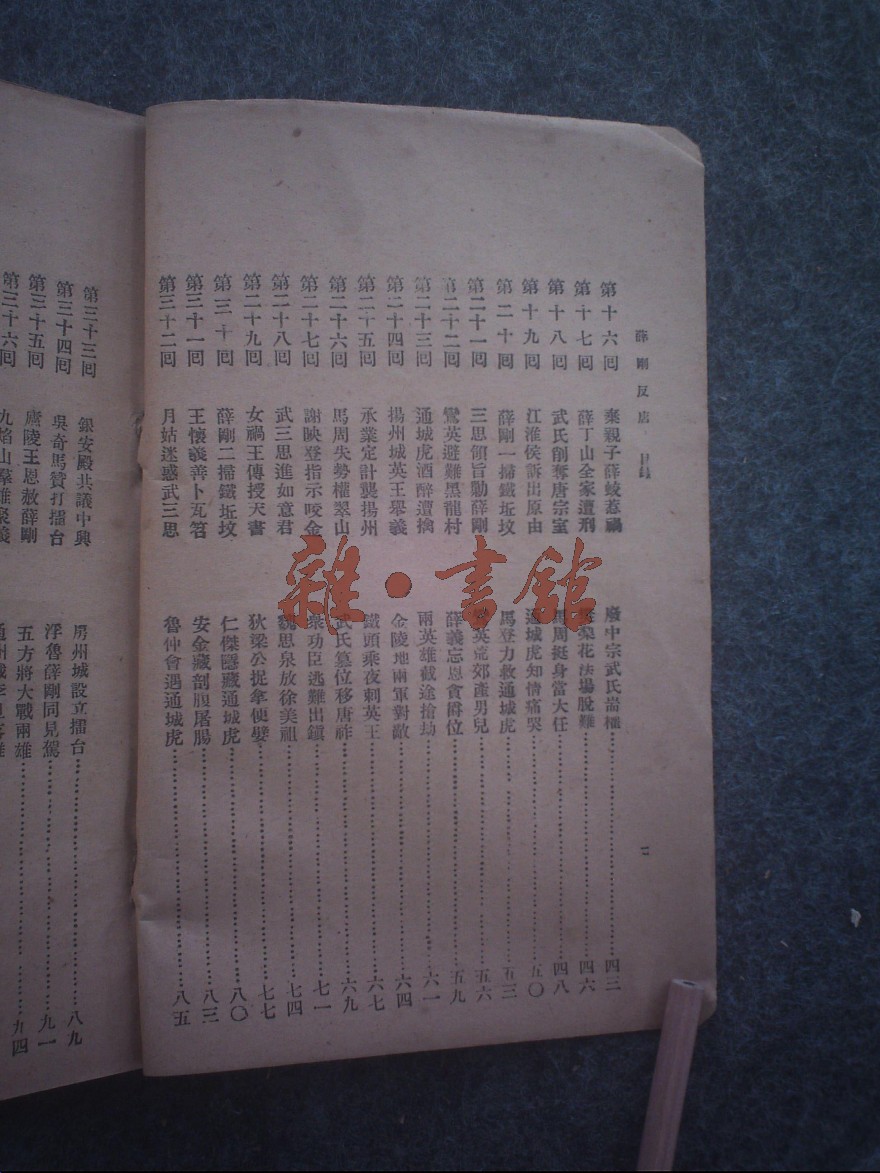 薛剛反唐 目錄
第十六回 棄親子薛蛟惹禍 廢中宗武氏耑權 四三
第十七回 薛丁山全家遭刑 梨花法場脫難 四六
第十八回 武氏削奪唐宗室 馬周挺身當大任 四八
第十九回 江淮侯訴出原由 通城虎知情痛哭 五〇
第二十回 薛剛一掃鐵坵坟 馬登力救通城虎 五三
第二十一回 三思領旨勦薛剛 鸞英荒郊產男兒 五六
第二十二回 鸞英避難黑龍村 薛義忘恩貪爵位 五九
第二十三回 通城虎酒醉遭擒 兩英雄截途搶劫 六一
第二十四回 揚州城英王舉義 金陵地兩軍對敵 六四
第二十五回 承業定計襲揚州 鐵頭乘夜刺英王 六七
第二十六回 馬周失勢權翠山 武氏篡位移唐祚 六九
第二十七回 謝映登指示咬金 衆功臣逃難出鎮 七一
第二十八回 武三思進如意君 魏思泉放徐美祖 七四
第二十九回 女禍王傳授天書 狄梁公捉拿便嬖 七七
第三十回 薛剛二掃鐵坵坟 仁傑隱藏通城虎 八〇
第三十一回 王懷義善卜瓦笤 安金藏剖腹屠腸 八三
第三十二回 月姑迷惑武三思 魯仲會遇通城虎 八五
第三十三回 銀安殿共議中興 房州城設立擂台 八九
第三十四回 吳奇馬贊打擂台 浮魯薛剛同見駕 九一
第三十五回 廬陵王恩赦薛剛 五方將大戰兩雄 九四
第三十六回 九焰山羣雄聚義
雜·書館